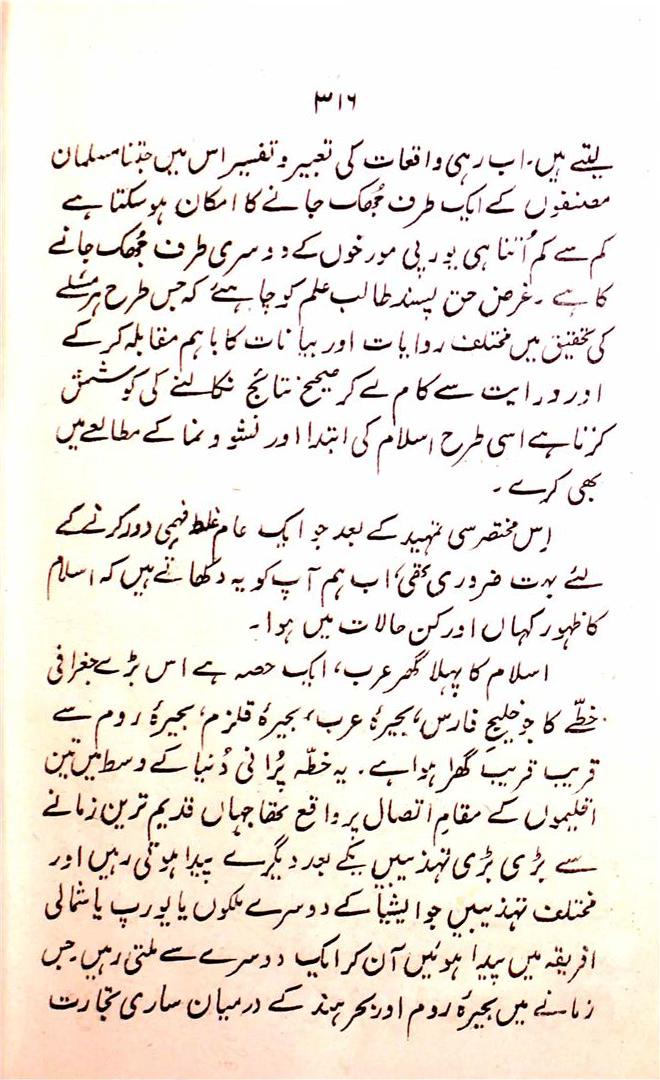 ۳۱۶
لیتے ہیں۔ اب رہی واقعات کی تعبیر و تفسیر اس میں جتنا مسلمان
مصنفوں کے ایک طرف جُھک جانے کا امکان ہوسکتا ہے
کم سے کم اُتنا ہی یورپی مورخوں کے دوسری طرف جُھک جانے
کا ہے۔ غرض حق پسند طالب علم کو چاہئے کہ جس طرح ہر مسئلے
کی تحقیق میں مختلف روایات اور بیانات کا باہم مقابلہ کرکے
اور درایت سے کام لے کر صحیح نتائج نکالنے کی کوشش
کرتا ہے اسی طرح اسلام کی ابتدا اور نشو و نما کے مطالعے میں
بھی کرے۔
اِس مختصر سی تمہید کے بعد جو ایک عام غلط فہمی دور کرنے کے
لئے بہت ضروری تھی، اب ہم آپ کو یہ دکھاتے ہیں کہ اسلام
کا ظہور کہاں اور کن حالات میں ہوا۔
اسلام کا پہلا گھر عرب، ایک حصہ ہے اس بڑے جغرافی
خطّے کا جو خلیجِ فارس، بحیرۂ عرب، بحیرۂ قلزم، بحیرۂ روم سے
قریب قریب گھرا ہوا ہے۔ یہ خطّہ پُرانی دُنیا کے وسط میں تین
اقلیموں کے مقامِ اتصال پر واقع تھا جہاں قدیم ترین زمانے
سے بڑی بڑی تہذیبیں یکے بعد دیگرے پیدا ہوتی رہیں اور
مختلف تہذیبیں جو ایشیا کے دوسرے ملکوں یا یورپ یا شمالی
افریقہ میں پیدا ہوئیں آن کر ایک دوسرے سے ملتی رہیں۔ جس
زمانے میں بحیرۂ روم اور بحر ہند کے درمیان ساری تجارت